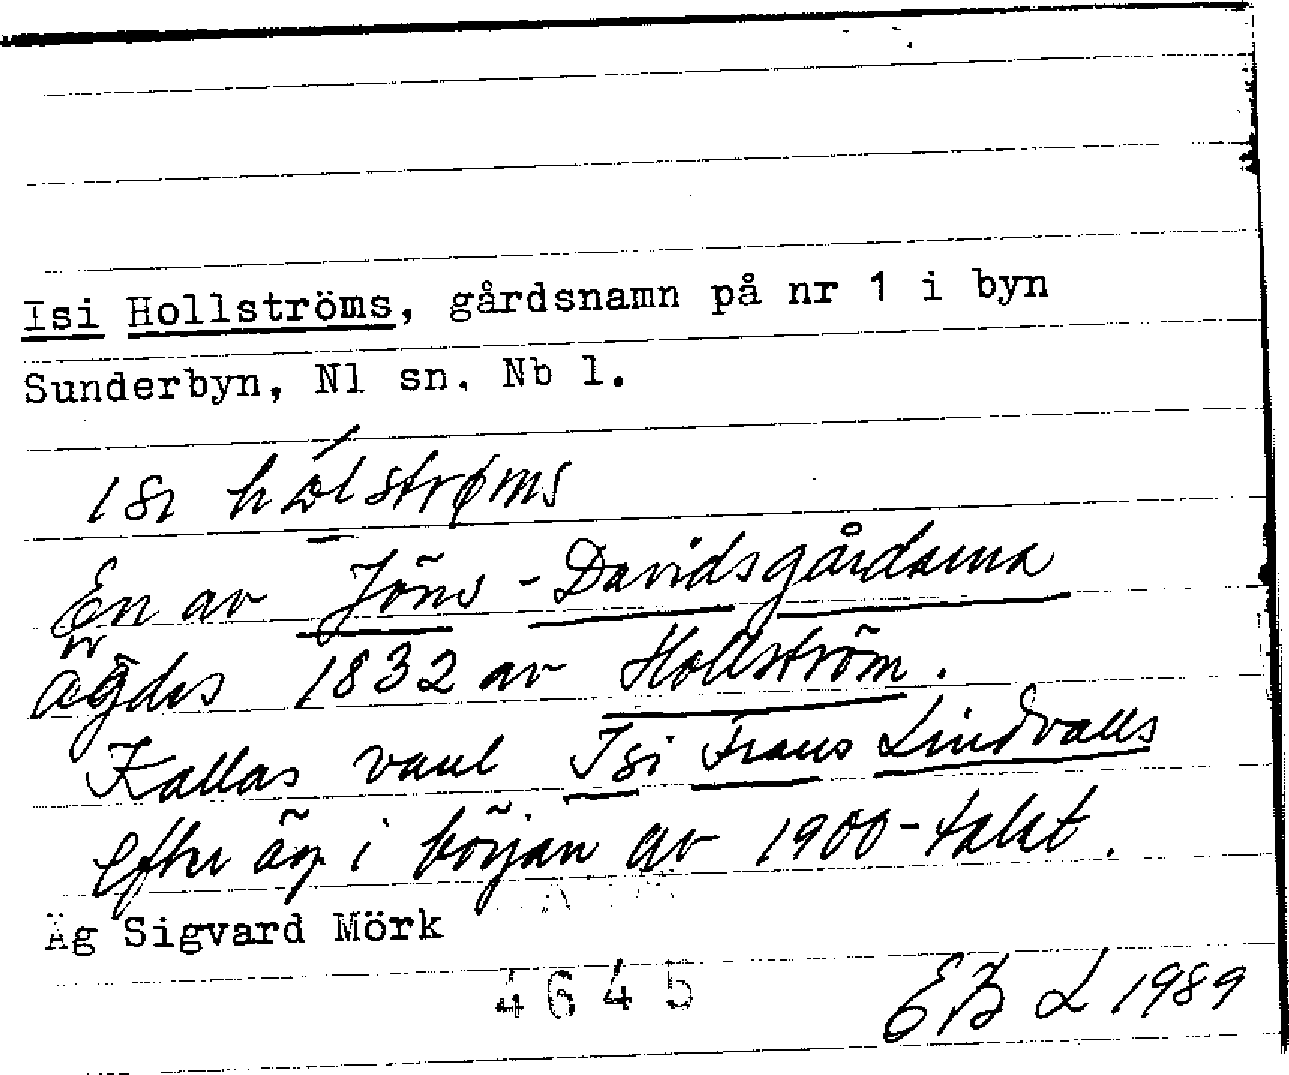 Isi Hollströms, gårdsnamn på nr 1 i byn
Sunderbyn, Nl sn. Nb l.
isi hɔ́lstrøms
En av Jöns-Davidsgårdarna
ägdes 1832 av Hollström.
Kallas vanl Isi Frans Lindvalls
efter äg i början av 1900-talet.
Äg Sigvard Mörk
4645
EB L 1989